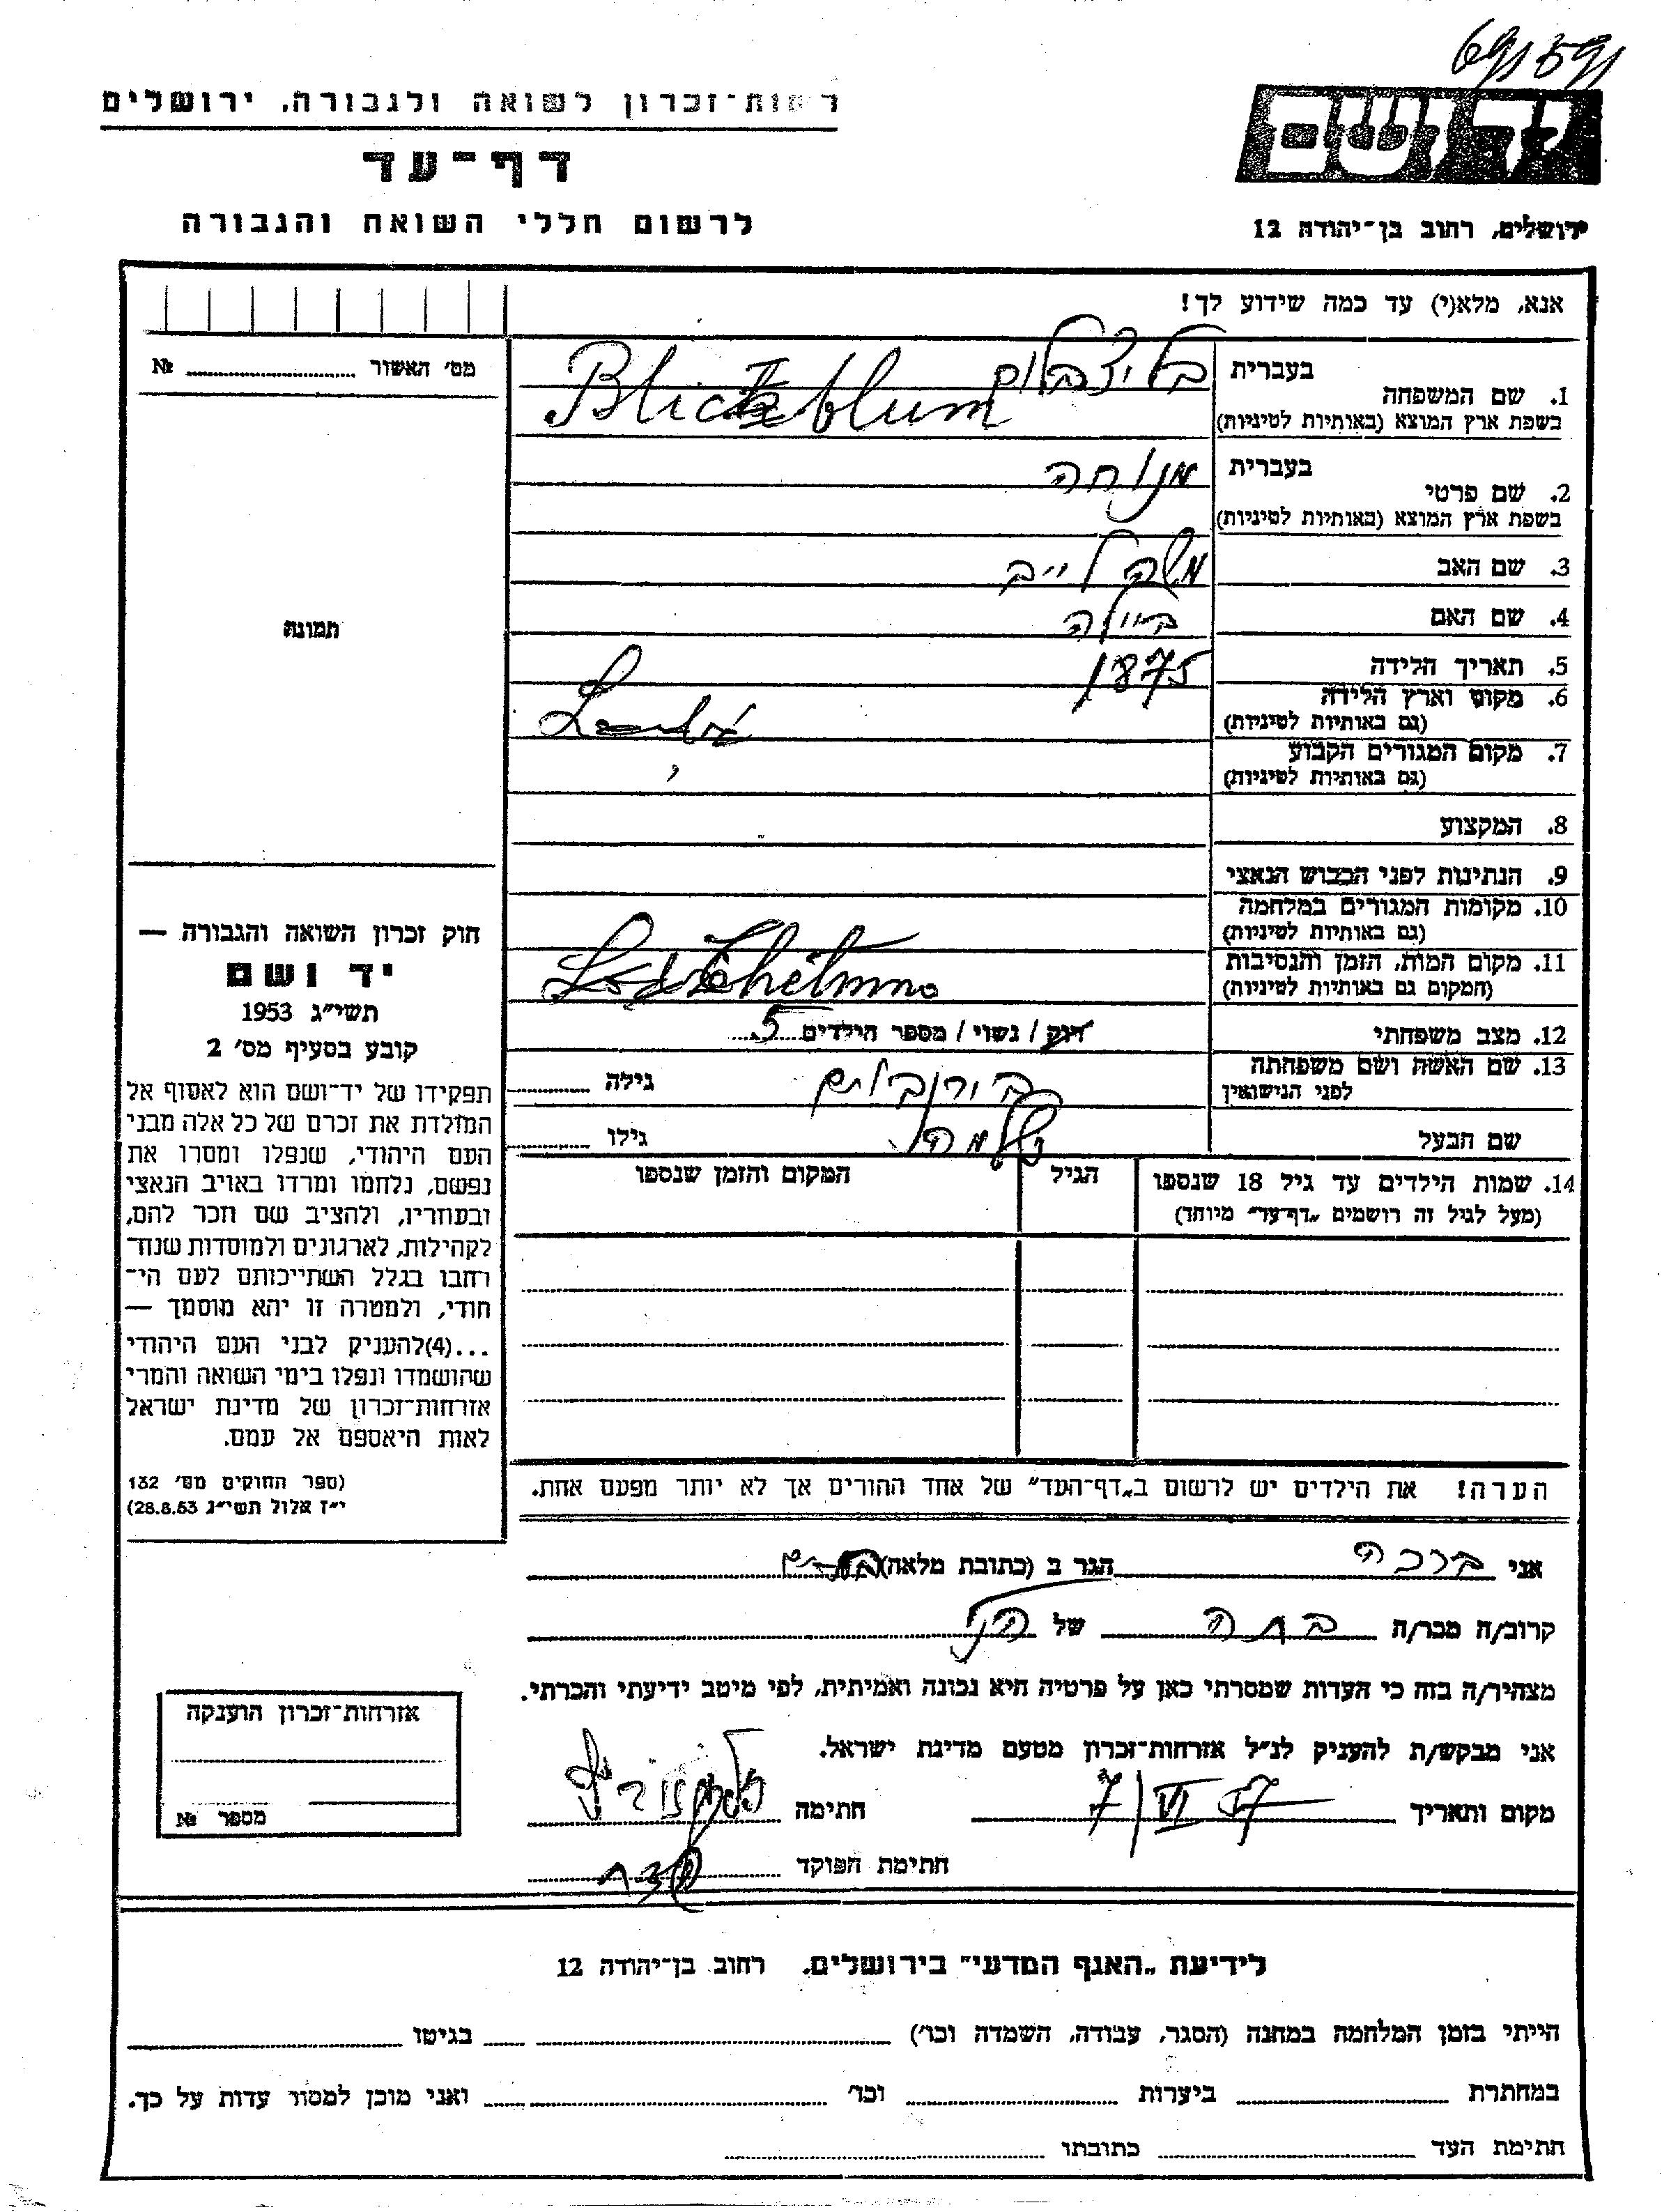 רשות-זכרון לשואה ולגבורה, ירושלים
דף-עד
לרשום חללי השואה והגבורה
ירושלים, רחוב בן-יהודה 12
אנא, מלא(י) עד כמה שידוע לך!
מס׳ האשור № 
1. שם המשפחה בעברית בליצבלום
בשפת ארץ המוצא (באותיות לטיניות) Blicblum
2. שם פרטי בעברית מנוחה
בשפת ארץ המוצא (באותיות לטיניות)
3. שם האב משה לייב
4. שם האם ביילה
5. תאריך הלידה 1875
6. מקום וארץ הלידה
(גם באותיות לטיניות)
7. מקום המגורים הקבוע
(גם באותיות לטיניות)
8. המקצוע
9. הנתינות לפני הכבוש הנאצי
10. מקומות המגורים במלחמה
(גם באותיות לטיניות)
11. מקום המות, הזמן והנסיבות
(המקום גם באותיות לטיניות) Chełmno
12. מצב משפחתי רווק / נשוי / מספר הילדים 5
13. שם האשה ושם משפחתה
לפני הנישואין בירנבוים גילה
שם הבעל שלמה גילו
14. שמות הילדים עד גיל 18 שנספו
(מעל לגיל זה רושמים „דף-עד״ מיוחד)
הגיל
המקום והזמן שנספו
תמונה
חוק זכרון השואה והגבורה —
יד ושם
תשי״ג 1953
קובע בסעיף מס׳ 2
תפקידו של יד-ושם הוא לאסוף אל
המולדת את זכרם של כל אלה מבני
העם היהודי, שנפלו ומסרו את
נפשם, נלחמו ומרדו באויב הנאצי
ובעוזריו, ולהציב שם וזכר להם,
לקהילות, לארגונים ולמוסדות שנח-
רחבו בגלל השתייכותם לעם הי-
הודי, ולמטרה זו יהא מוסמך —
...(4) להעניק לבני העם היהודי
שהושמדו ונפלו בימי השואה והמרי
אזרחות-זכרון של מדינת ישראל
לאות היאספם אל עמם.
(ספר החוקים מס׳ 132
י״ז אלול תשי״ג 28.8.53)
הערה! את הילדים יש לרשום ב„דף-העד״ של אחד ההורים אך לא יותר מפעם אחת.
אני ברכה הגר ב (כתובת מלאה)
קרוב/ה מכר/ה בתה של הנ״ל
מצהיר/ה בזה כי העדות שמסרתי כאן על פרטיה היא נכונה ואמיתית, לפי מיטב ידיעתי והכרתי.
אני מבקש/ת להעניק לנ״ל אזרחות-זכרון מטעם מדינת ישראל.
מקום ותאריך 7/VI 57 חתימה
חתימת הפוקד
אזרחות-זכרון הוענקה
מספר №
לידיעת „האגף המדעי״ בירושלים, רחוב בן-יהודה 12
הייתי בזמן המלחמה במחנה (הסגר, עבודה, השמדה וכו׳) בגיטו
במחתרת ביערות וכו׳ ואני מוכן למסור עדות על כך.
חתימת העד כתובתו